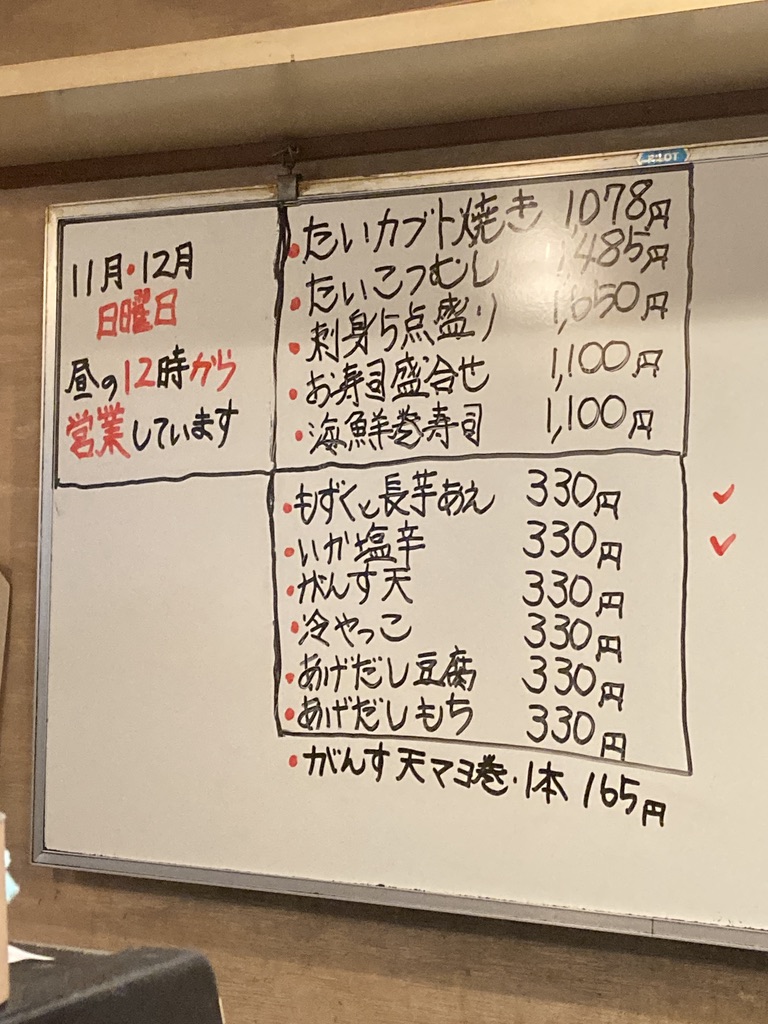 PILOT
11月・12月
日曜日
昼の12時から
営業しています
・たいカブト焼き 1,078円
・たいこつむし 1,485円
・刺身5点盛り 1,650円
・お寿司盛合せ 1,100円
・海鮮巻寿司 1,100円
・もずくと長芋あえ 330円
・いか塩辛 330円
・がんす天 330円
・冷やっこ 330円
・あげだし豆腐 330円
・あげだしもち 330円
・がんす天マヨ巻・1本 165円